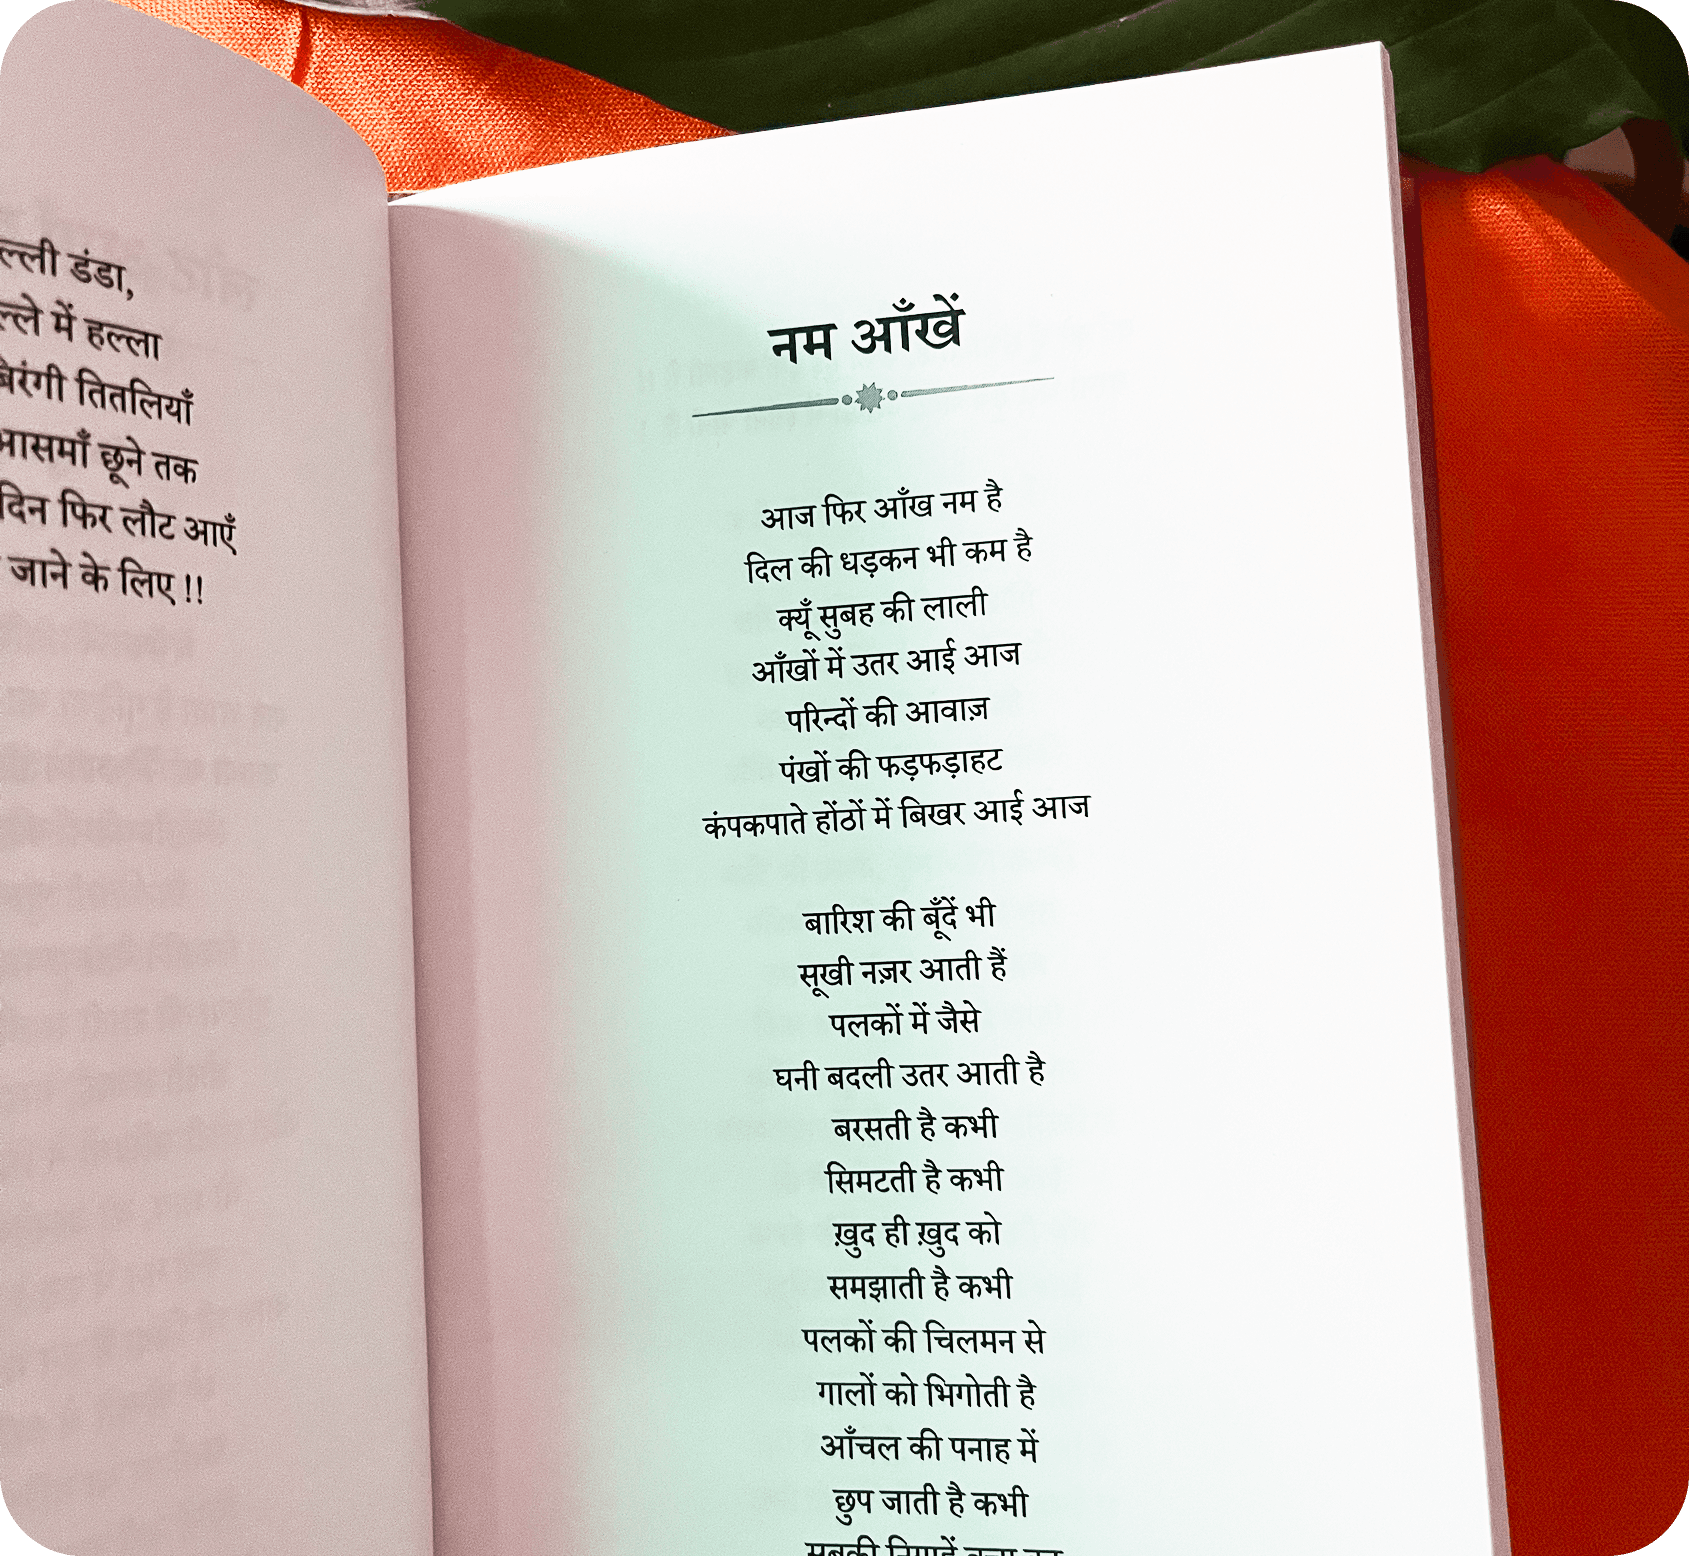 डंडा,
में हल्ला
तितलियाँ
छूने तक
दिन फिर लौट आएँ
जाने के लिए !!
नम आँखें
आज फिर आँख नम है
दिल की धड़कन भी कम है
क्यूँ सुबह की लाली
आँखों में उतर आई आज
परिन्दों की आवाज़
पंखों की फड़फड़ाहट
कंपकपाते होंठों में बिखर आई आज
बारिश की बूँदें भी
सूखी नज़र आती हैं
पलकों में जैसे
घनी बदली उतर आती है
बरसती है कभी
सिमटती है कभी
ख़ुद ही ख़ुद को
समझाती है कभी
पलकों की चिलमन से
गालों को भिगोती है
आँचल की पनाह में
छुप जाती है कभी